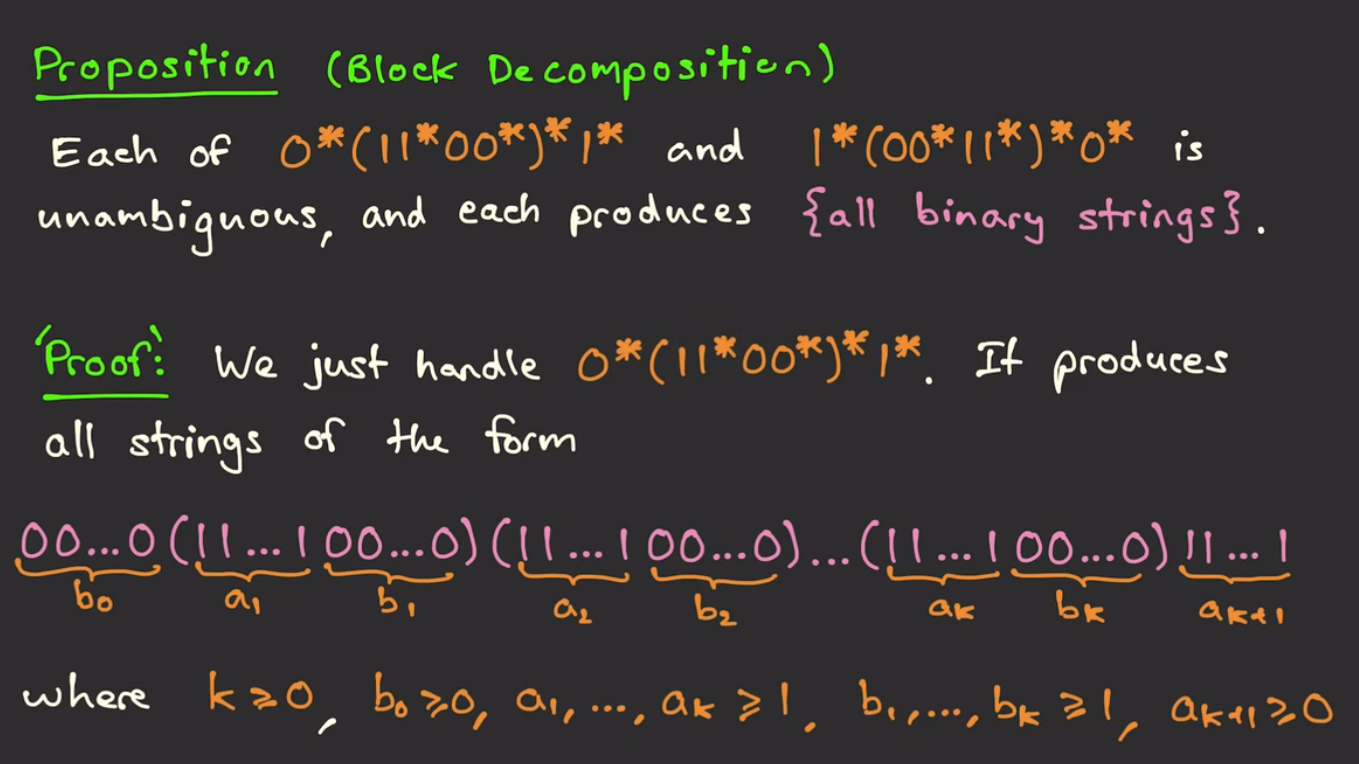 Proposition (Block Decomposition)
Each of 0*(11*00*)*1* and 1*(00*11*)*0* is
unambiguous, and each produces {all binary strings}.
'Proof': We just handle 0*(11*00*)*1*. It produces
all strings of the form
00...0(11...100...0)(11...100...0)...(11...100...0)11...1
b₀ a₁ b₁ a₂ b₂ aₖ bₖ aₖ₊₁
where k ≥ 0, b₀ ≥ 0, a₁, ..., aₖ ≥ 1, b₁, ..., bₖ ≥ 1, aₖ₊₁ ≥ 0